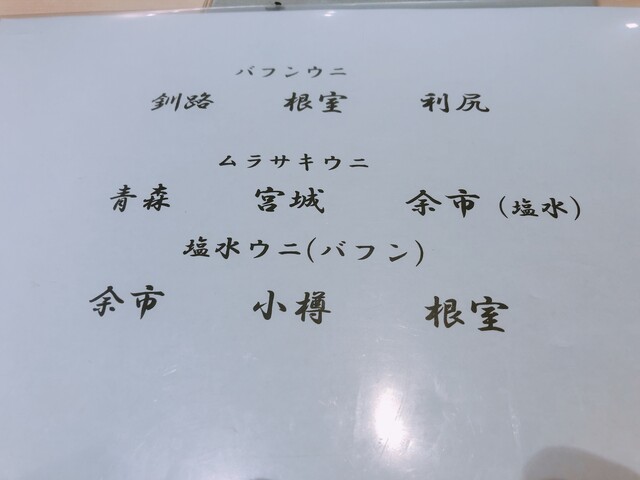 バフンウニ
釧路 根室 利尻
ムラサキウニ
青森 宮城 余市(塩水)
塩水ウニ(バフン)
余市 小樽 根室